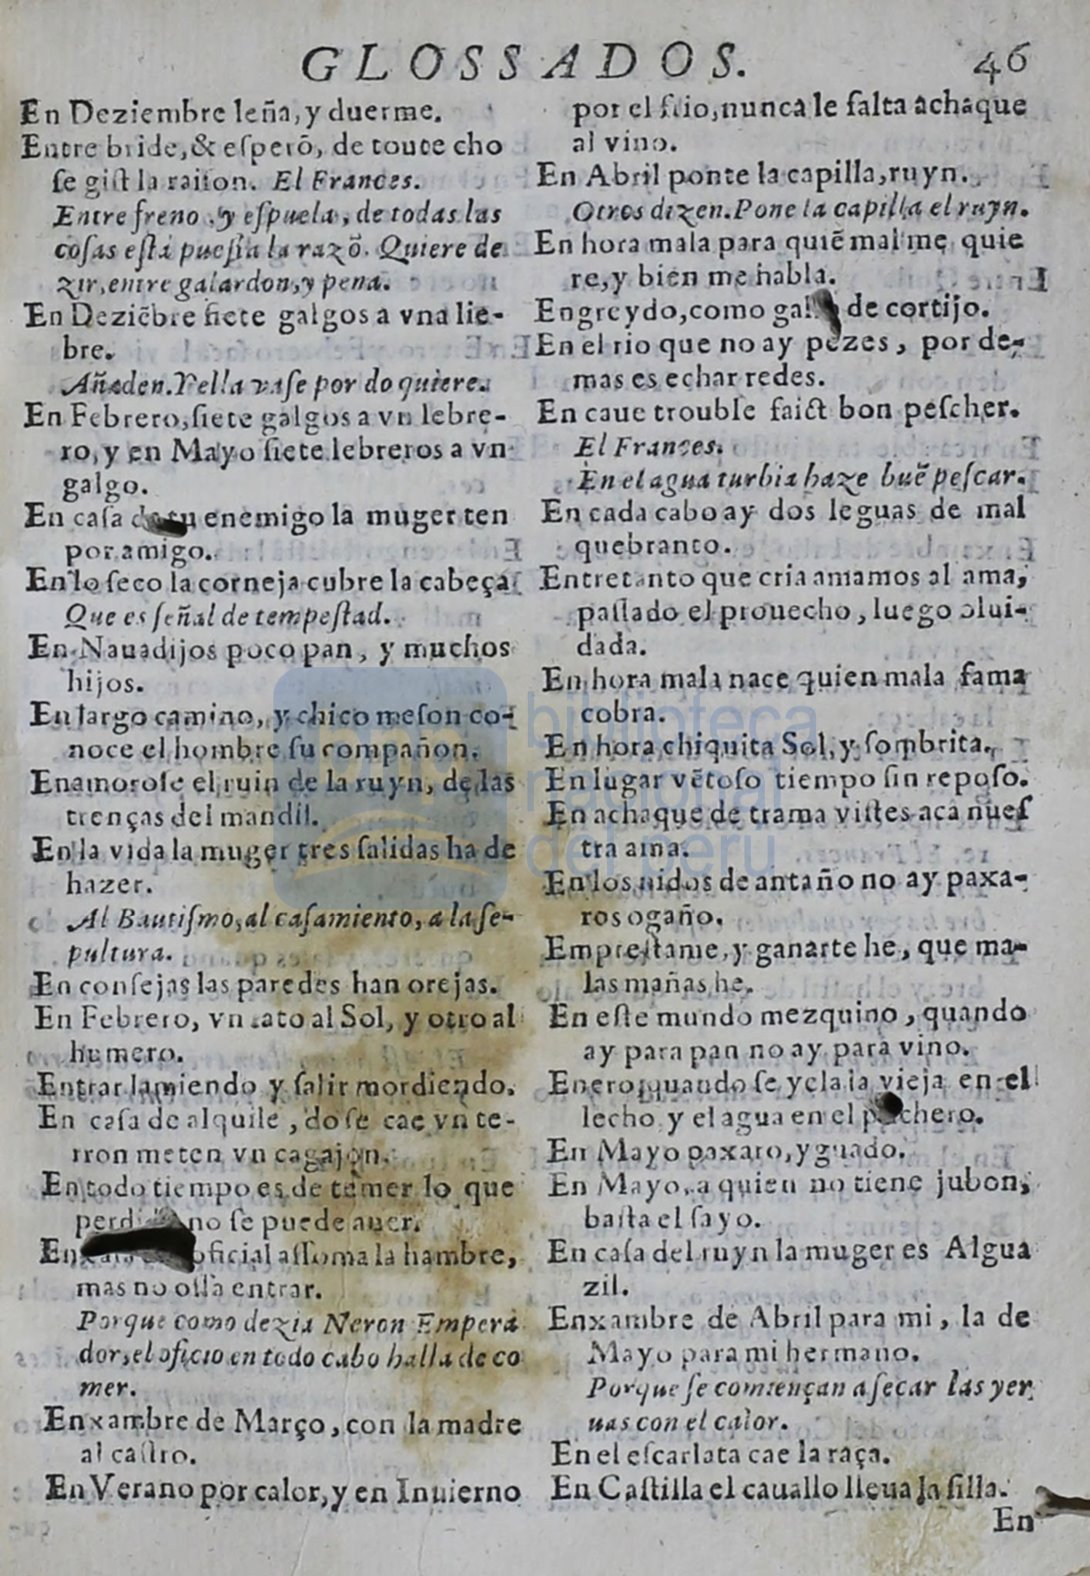 GLOSSADOS. 46
En Deziembre leña, y duerme.
Entre bride, & esperõ, de toute cho
se gist la raison. El Frances.
Entre freno, y espuela, de todas las
cosas está puesta la razõ. Quiere de
zir, entre galardon, y pena.
En Deziẽbre siete galgos a vna lie-
bre.
Añaden. Y ella vase por do quiere.
En Febrero, siete galgos a vn lebre-
ro, y en Mayo siete lebreros a vn
galgo.
En casa de tu enemigo la muger ten
por amigo.
En lo seco la corneja cubre la cabeça
Que es señal de tempestad.
En Nauadijos poco pan, y muchos
hijos.
En largo camino, y chico meson co-
noce el hombre su compañon.
Enamorose el ruin de la ruyn, de las
trenças del mandil.
En la vida la muger tres salidas ha de
hazer.
Al Bautismo, al casamiento, a la se-
pultura.
En consejas las paredes han orejas.
En Febrero, vn rato al Sol, y otro al
humero.
Entrar lamiendo y salir mordiendo.
En casa de alquile, do se cae vn te-
rron meten vn cagajon.
En todo tiempo es de temer lo que
perdido no se puede auer.
En oficial assoma la hambre,
mas no ossa entrar.
Porque como dezia Neron Empera
dor, el oficio en todo cabo halla de co
mer.
Enxambre de Março, con la madre
al castro.
En Verano por calor, y en Inuierno
por el frio, nunca le falta achaque
al vino.
En Abril ponte la capilla, ruyn.
Otros dizen. Pone la capilla el ruyn.
En hora mala para quiẽ mal me quie
re, y bien me habla.
Engreydo, como gallo de cortijo.
En el rio que no ay pezes, por de-
mas es echar redes.
En caue trouble faict bon pescher.
El Frances.
En el agua turbia haze buẽ pescar.
En cada cabo ay dos leguas de mal
quebranto.
Entretanto que cria amamos al ama,
passado el prouecho, luego olui-
dada.
En hora mala nace quien mala fama
cobra.
En hora chiquita Sol, y sombrita.
En lugar vẽtoso tiempo sin reposo.
En achaque de trama vistes acà nues
tra ama.
En los nidos de antaño no ay paxa-
ros ogaño.
Emprestame, y ganarte he, que ma-
las mañas he.
En este mundo mezquino, quando
ay para pan no ay para vino.
Enero, quando se yela la vieja en el
lecho, y el agua en el puchero.
En Mayo paxaro, y guado.
En Mayo, a quien no tiene jubon,
basta el sayo.
En casa del ruyn la muger es Algua
zil.
Enxambre de Abril para mi, la de
Mayo para mi hermano.
Porque se comiençan a secar las yer
uas con el calor.
En el escarlata cae la raça.
En Castilla el cauallo lleua la silla.
En
biblioteca
nacional
del perú